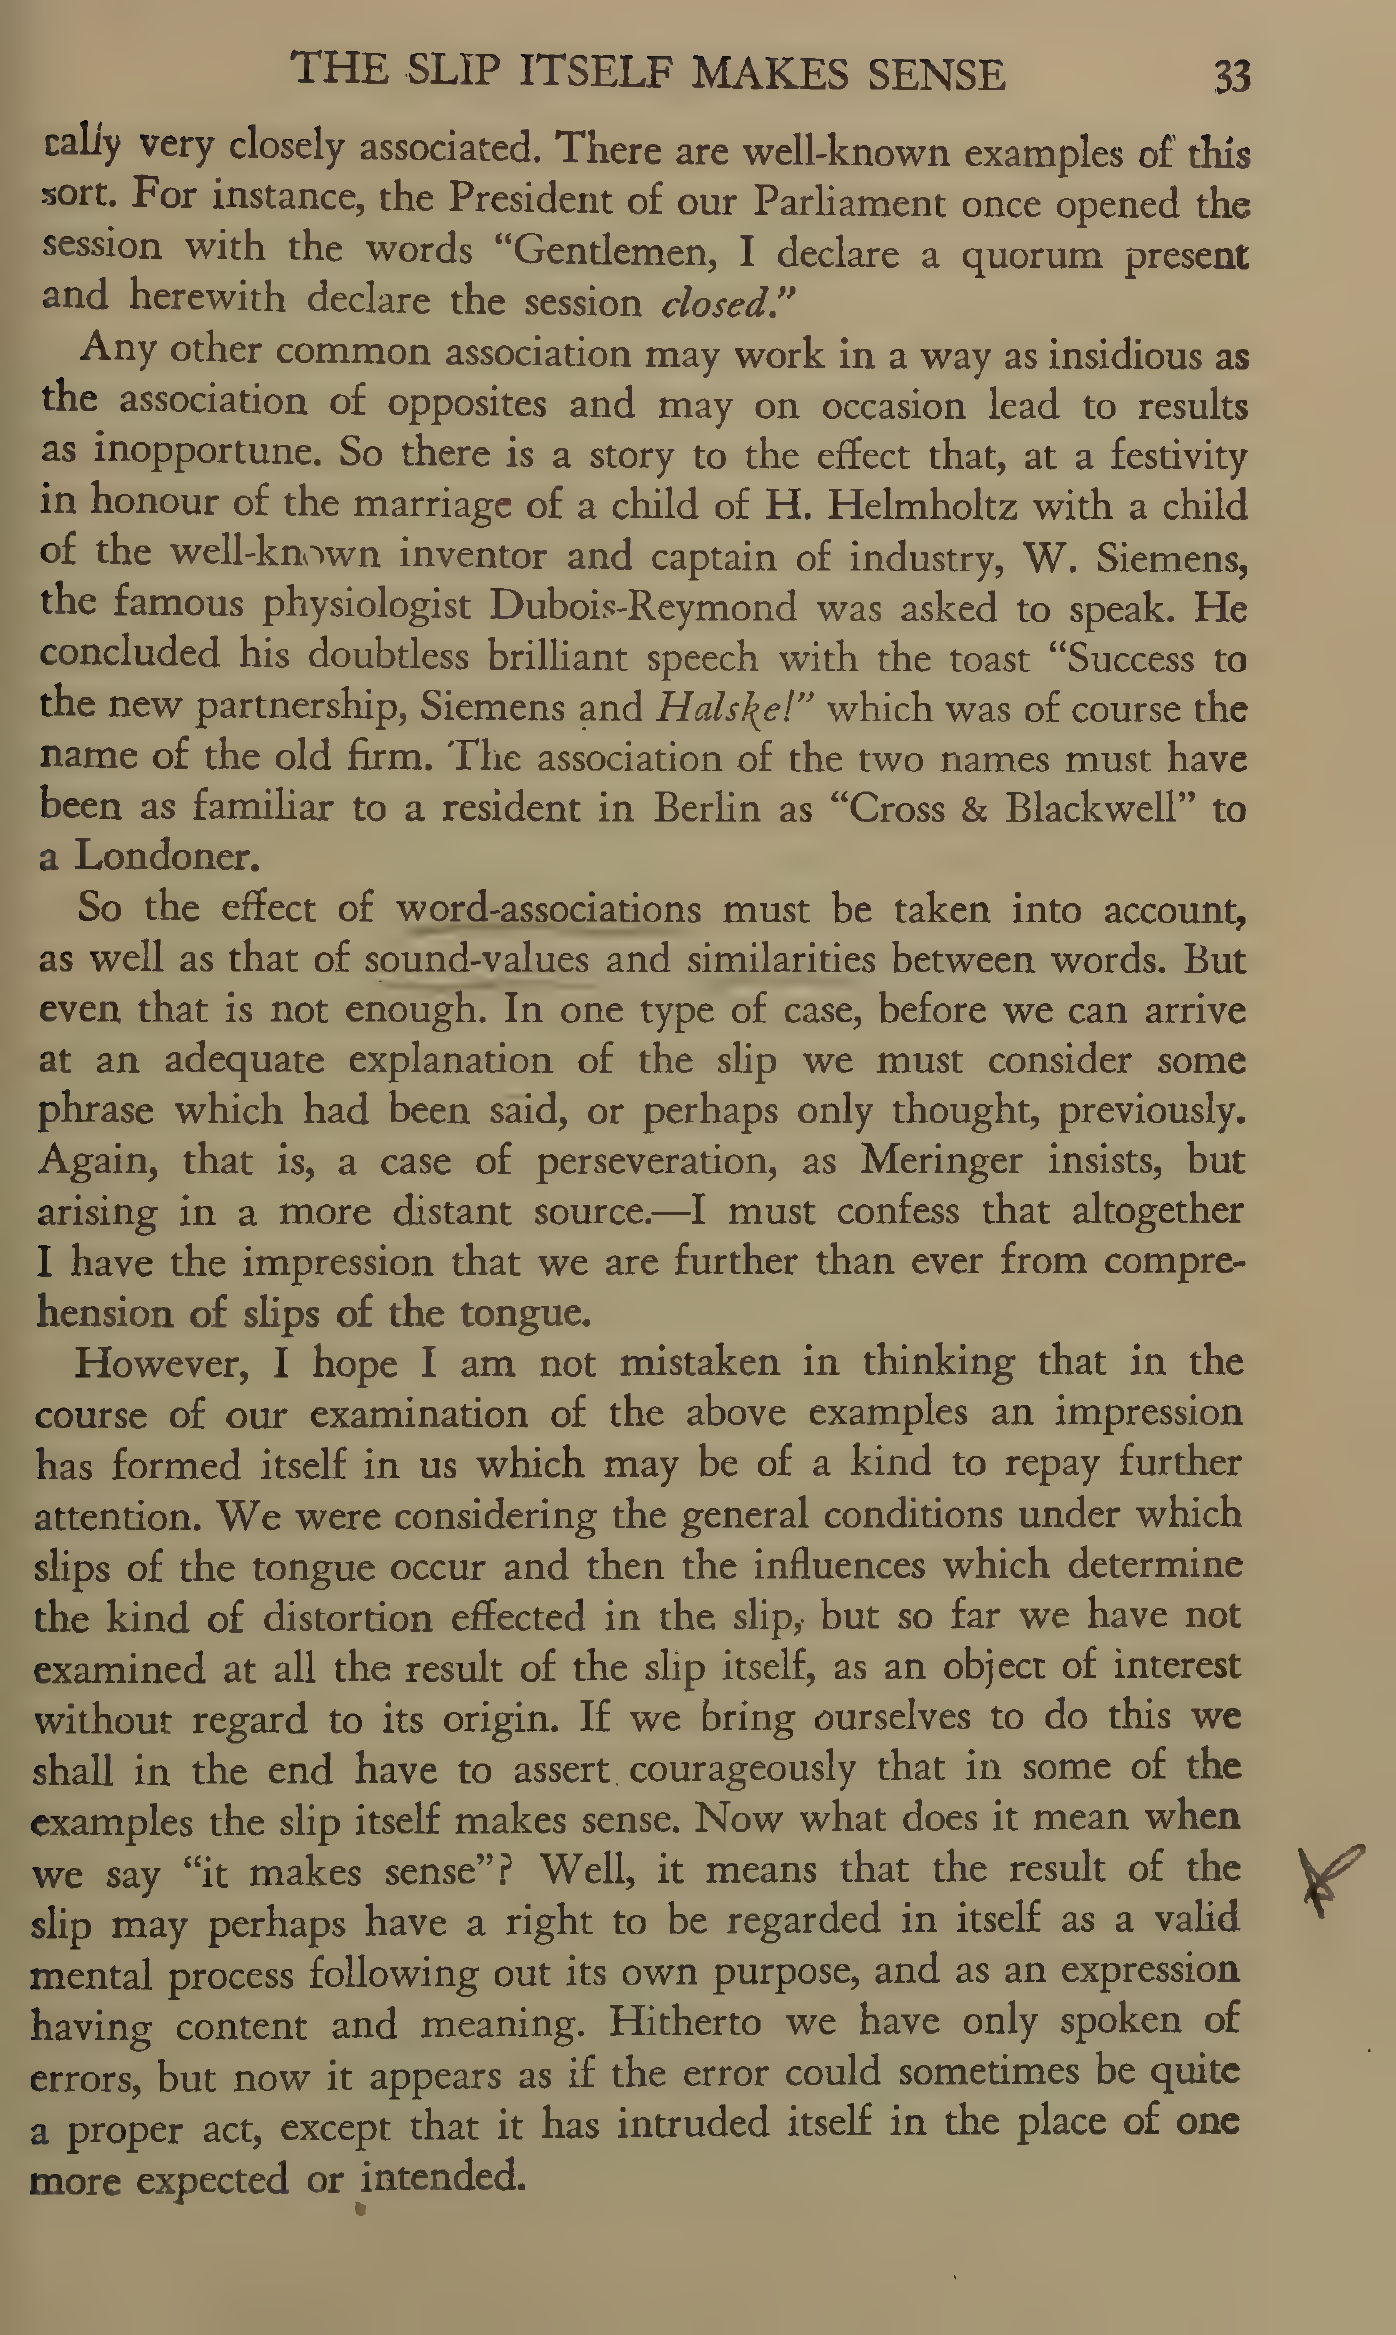 THE SLIP ITSELF MAKES SENSE 33
cally very closely associated. There are well-known examples of this
sort. For instance, the President of our Parliament once opened the
session with the words “Gentlemen, I declare a quorum present
and herewith declare the session closed.”
Any other common association may work in a way as insidious as
the association of opposites and may on occasion lead to results
as inopportune. So there is a story to the effect that, at a festivity
in honour of the marriage of a child of H. Helmholtz with a child
of the well-known inventor and captain of industry, W. Siemens,
the famous physiologist Dubois-Reymond was asked to speak. He
concluded his doubtless brilliant speech with the toast “Success to
the new partnership, Siemens and Halske!” which was of course the
name of the old firm. The association of the two names must have
been as familiar to a resident in Berlin as “Cross & Blackwell” to
a Londoner.
So the effect of word-associations must be taken into account,
as well as that of sound-values and similarities between words. But
even that is not enough. In one type of case, before we can arrive
at an adequate explanation of the slip we must consider some
phrase which had been said, or perhaps only thought, previously.
Again, that is, a case of perseveration, as Meringer insists, but
arising in a more distant source.—I must confess that altogether
I have the impression that we are further than ever from compre-
hension of slips of the tongue.
However, I hope I am not mistaken in thinking that in the
course of our examination of the above examples an impression
has formed itself in us which may be of a kind to repay further
attention. We were considering the general conditions under which
slips of the tongue occur and then the influences which determine
the kind of distortion effected in the slip, but so far we have not
examined at all the result of the slip itself, as an object of interest
without regard to its origin. If we bring ourselves to do this we
shall in the end have to assert courageously that in some of the
examples the slip itself makes sense. Now what does it mean when
we say “it makes sense”? Well, it means that the result of the
slip may perhaps have a right to be regarded in itself as a valid
mental process following out its own purpose, and as an expression
having content and meaning. Hitherto we have only spoken of
errors, but now it appears as if the error could sometimes be quite
a proper act, except that it has intruded itself in the place of one
more expected or intended.